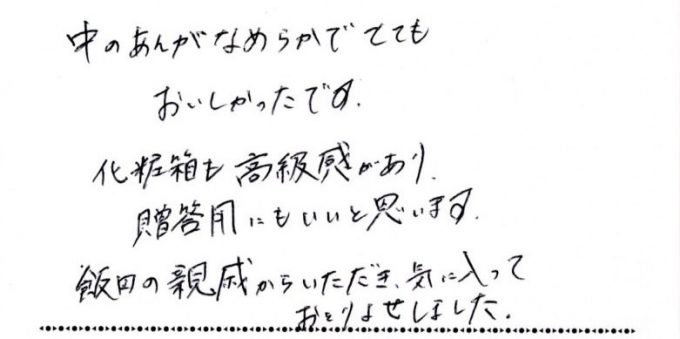 中のあんがなめらかでとても
おいしかったです.
化粧箱も高級感があり.
贈答用にもいいと思います.
飯田の親戚からいただき、気に入って
おとりよせしました.